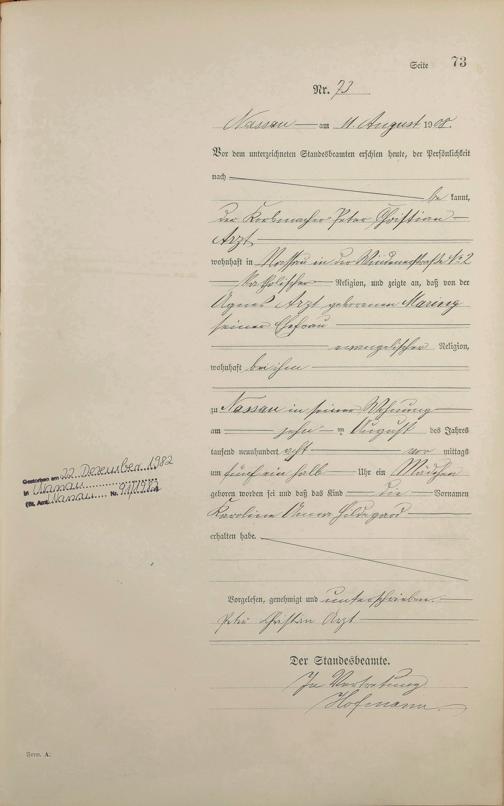 Seite 73
Nr. 73
Nassau am 11. August 1908.
Vor dem unterzeichneten Standesbeamten erschien heute, der Persönlichkeit
nach
be kannt,
der Korbmacher Peter Christian
Arzt
wohnhaft in Nassau in der Windenerstraße No 2
katholischer Religion, und zeigte an, daß von der
Agnes Arzt geborenen
seiner Ehefrau
evangelischer Religion,
wohnhaft bei ihm
zu Nassau in seiner Wohnung
am zehn ten August des Jahres
tausend neunhundert acht vor mittags
um fünf ein halb Uhr ein Mädchen
geboren worden sei und daß das Kind die Vornamen
Karolina Anna Hildegard
erhalten habe.
Gestorben am 22. Dezember 1982
in Nassau
(St. Amt Nassau Nr.
Vorgelesen, genehmigt und unterschrieben.
Peter Christian Arzt
Der Standesbeamte.
In Vertretung
Hofmann
Form. A.